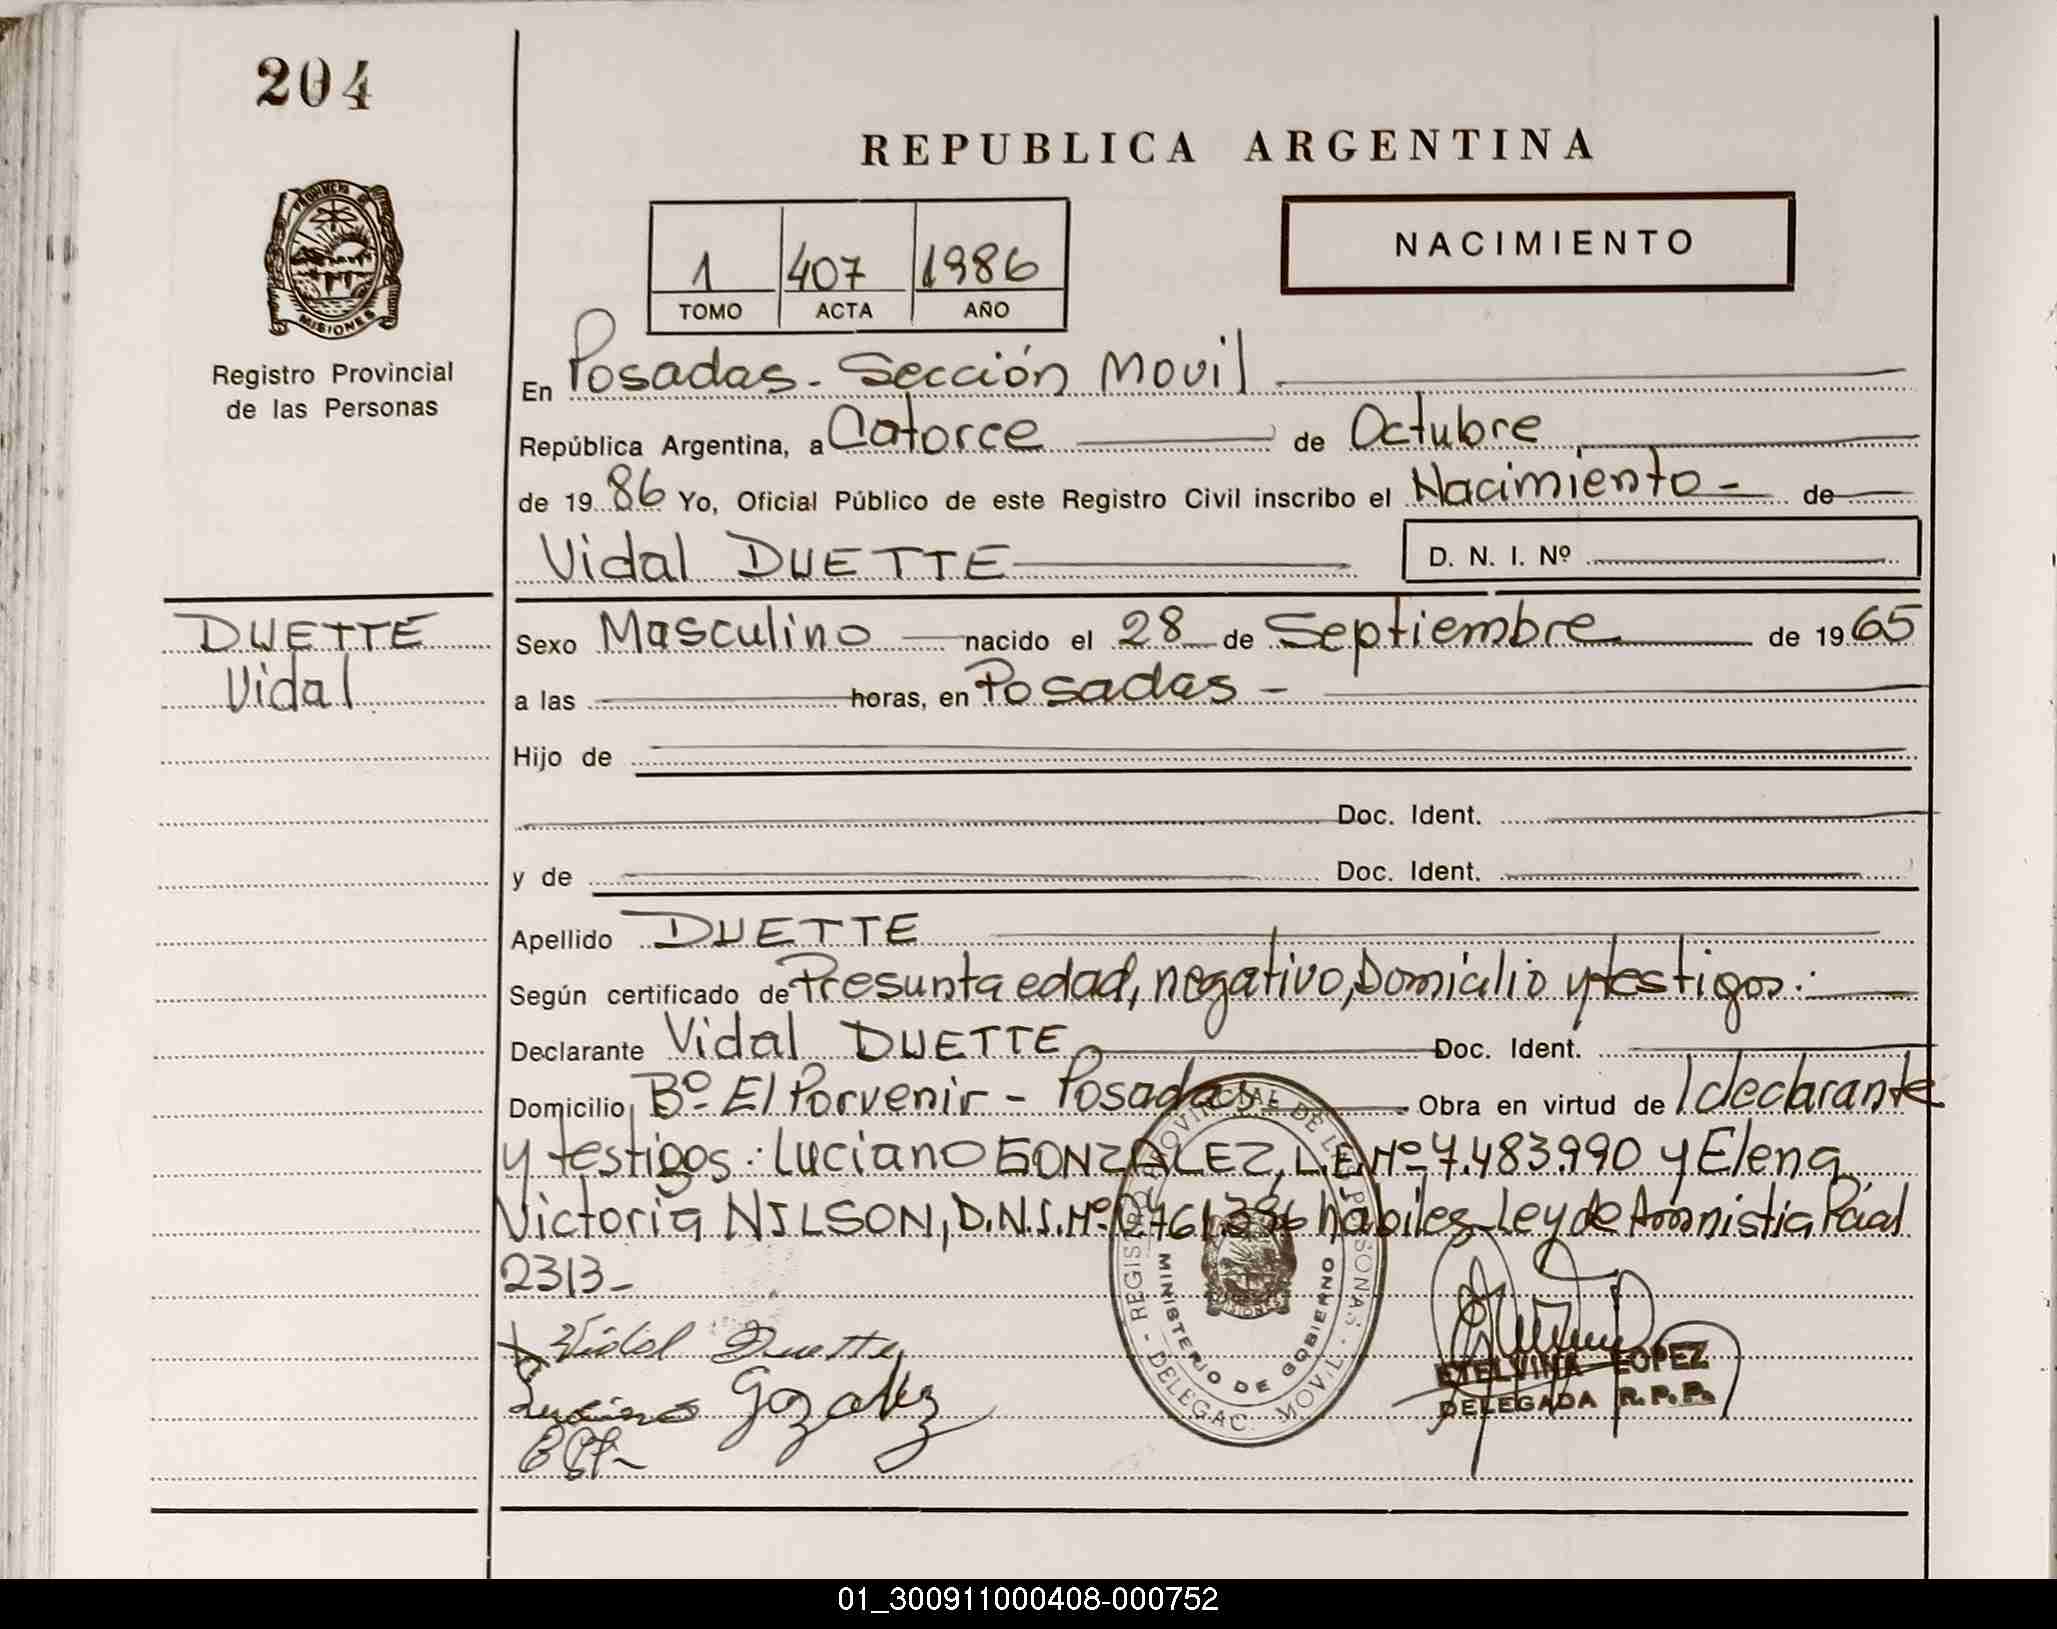 204
REPUBLICA ARGENTINA
NACIMIENTO
1 407 1986
TOMO ACTA AÑO
MISIONES
Registro Provincial
de las Personas
En Posadas - Sección Movil
República Argentina, a Catorce de Octubre
de 1986 Yo, Oficial Público de este Registro Civil inscribo el Nacimiento - de
Vidal DUETTE D. N. I. Nº
DUETTE
Vidal
Sexo Masculino nacido el 28 de Septiembre de 1965
a las horas, en Posadas -
Hijo de
Doc. Ident.
y de Doc. Ident.
Apellido DUETTE
Según certificado de Presunta edad, negativo, Domicilio y testigos:
Declarante Vidal DUETTE Doc. Ident.
Domicilio Bº El Porvenir - Posadas Obra en virtud de / declarante
y testigos: Luciano GONZALEZ, L.E. Nº 7.483.990 y Elena
Victoria NILSON, D.N.I. Nº habiles - Ley de Amnistia Pcial
2313 -
Vidal Duette
Luciano Gozalez
ETELVINA LOPEZ
DELEGADA R.P.P.
REGISTRO PROVINCIAL DE LAS PERSONAS - DELEGAC. MOVIL -
MINISTERIO DE GOBIERNO
01_300911000408-000752